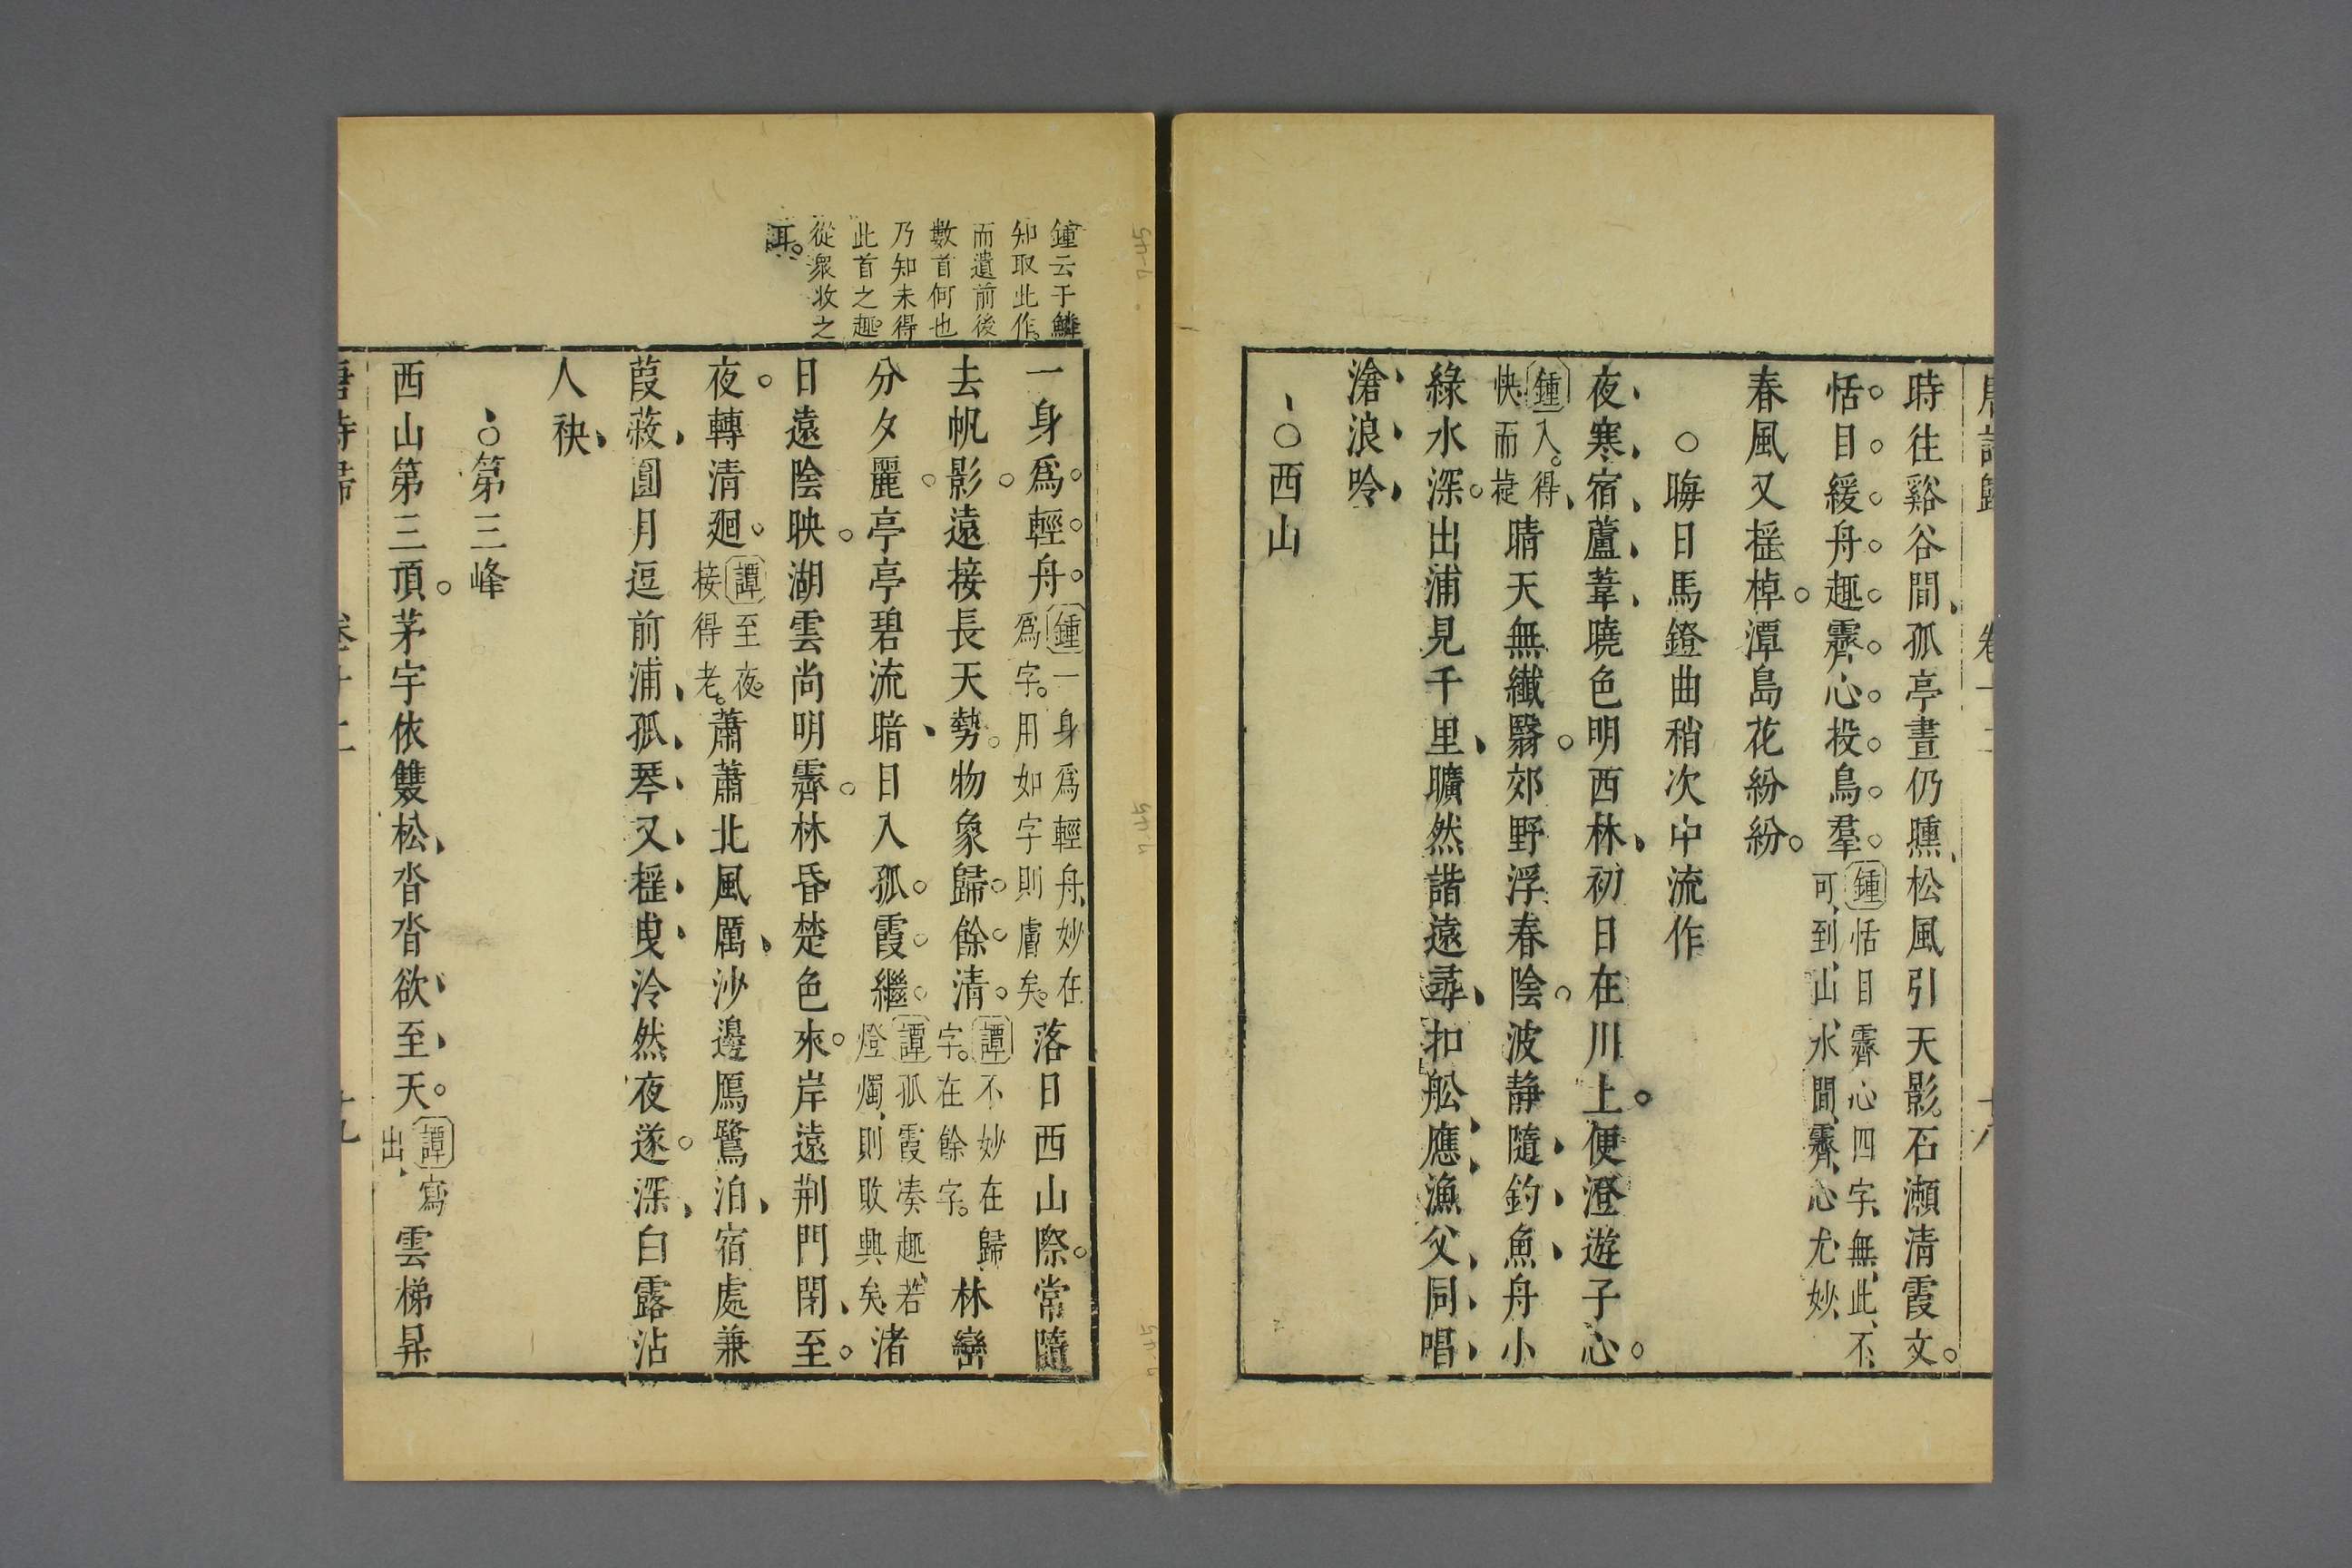 時往谿谷間孤亭晝仍曛松風引天影石瀬清霞文
恬目緩舟趣霽心投鳥羣鍾恬目霽心四字無此不可到山水間霽心尤妙
春風又搖棹潭島花紛紛
○晦日馬鐙曲稍次中流作
夜寒宿蘆葦曉色明西林初日在川上便澄遊子心
鍾入得快而㨗晴天無纎翳郊野浮春陰波静隨釣魚舟小
綠水深出浦見千里曠然諧遠尋扣舩應漁父同唱
滄浪吟
○西山
鍾云于鱗
知取此作
而遺前後
數首何也
乃知未得
此首之趣
從衆收之
耳
一身爲輕舟鍾一身爲輕舟妙在爲字用如字則膚矣落日西山際常隨
去帆影遠接長天勢物象歸餘清譚不妙在歸字在餘字林巒
分夕麗亭亭碧流暗日入孤霞繼譚孤霞凑趣若燈燭則敗興矣渚
日遠陰映湖雲尚明霽林昏楚色來岸遠荆門閉至
夜轉清廻譚至夜接得老蕭蕭北風厲沙邊鴈鷺泊宿處兼
葭蔽圓月逗前浦孤琴又搖曳泠然夜遂深白露沾
人袂
○第三峰
西山第三頂茅宇依雙松沓沓欲至天譚寫出雲梯昇